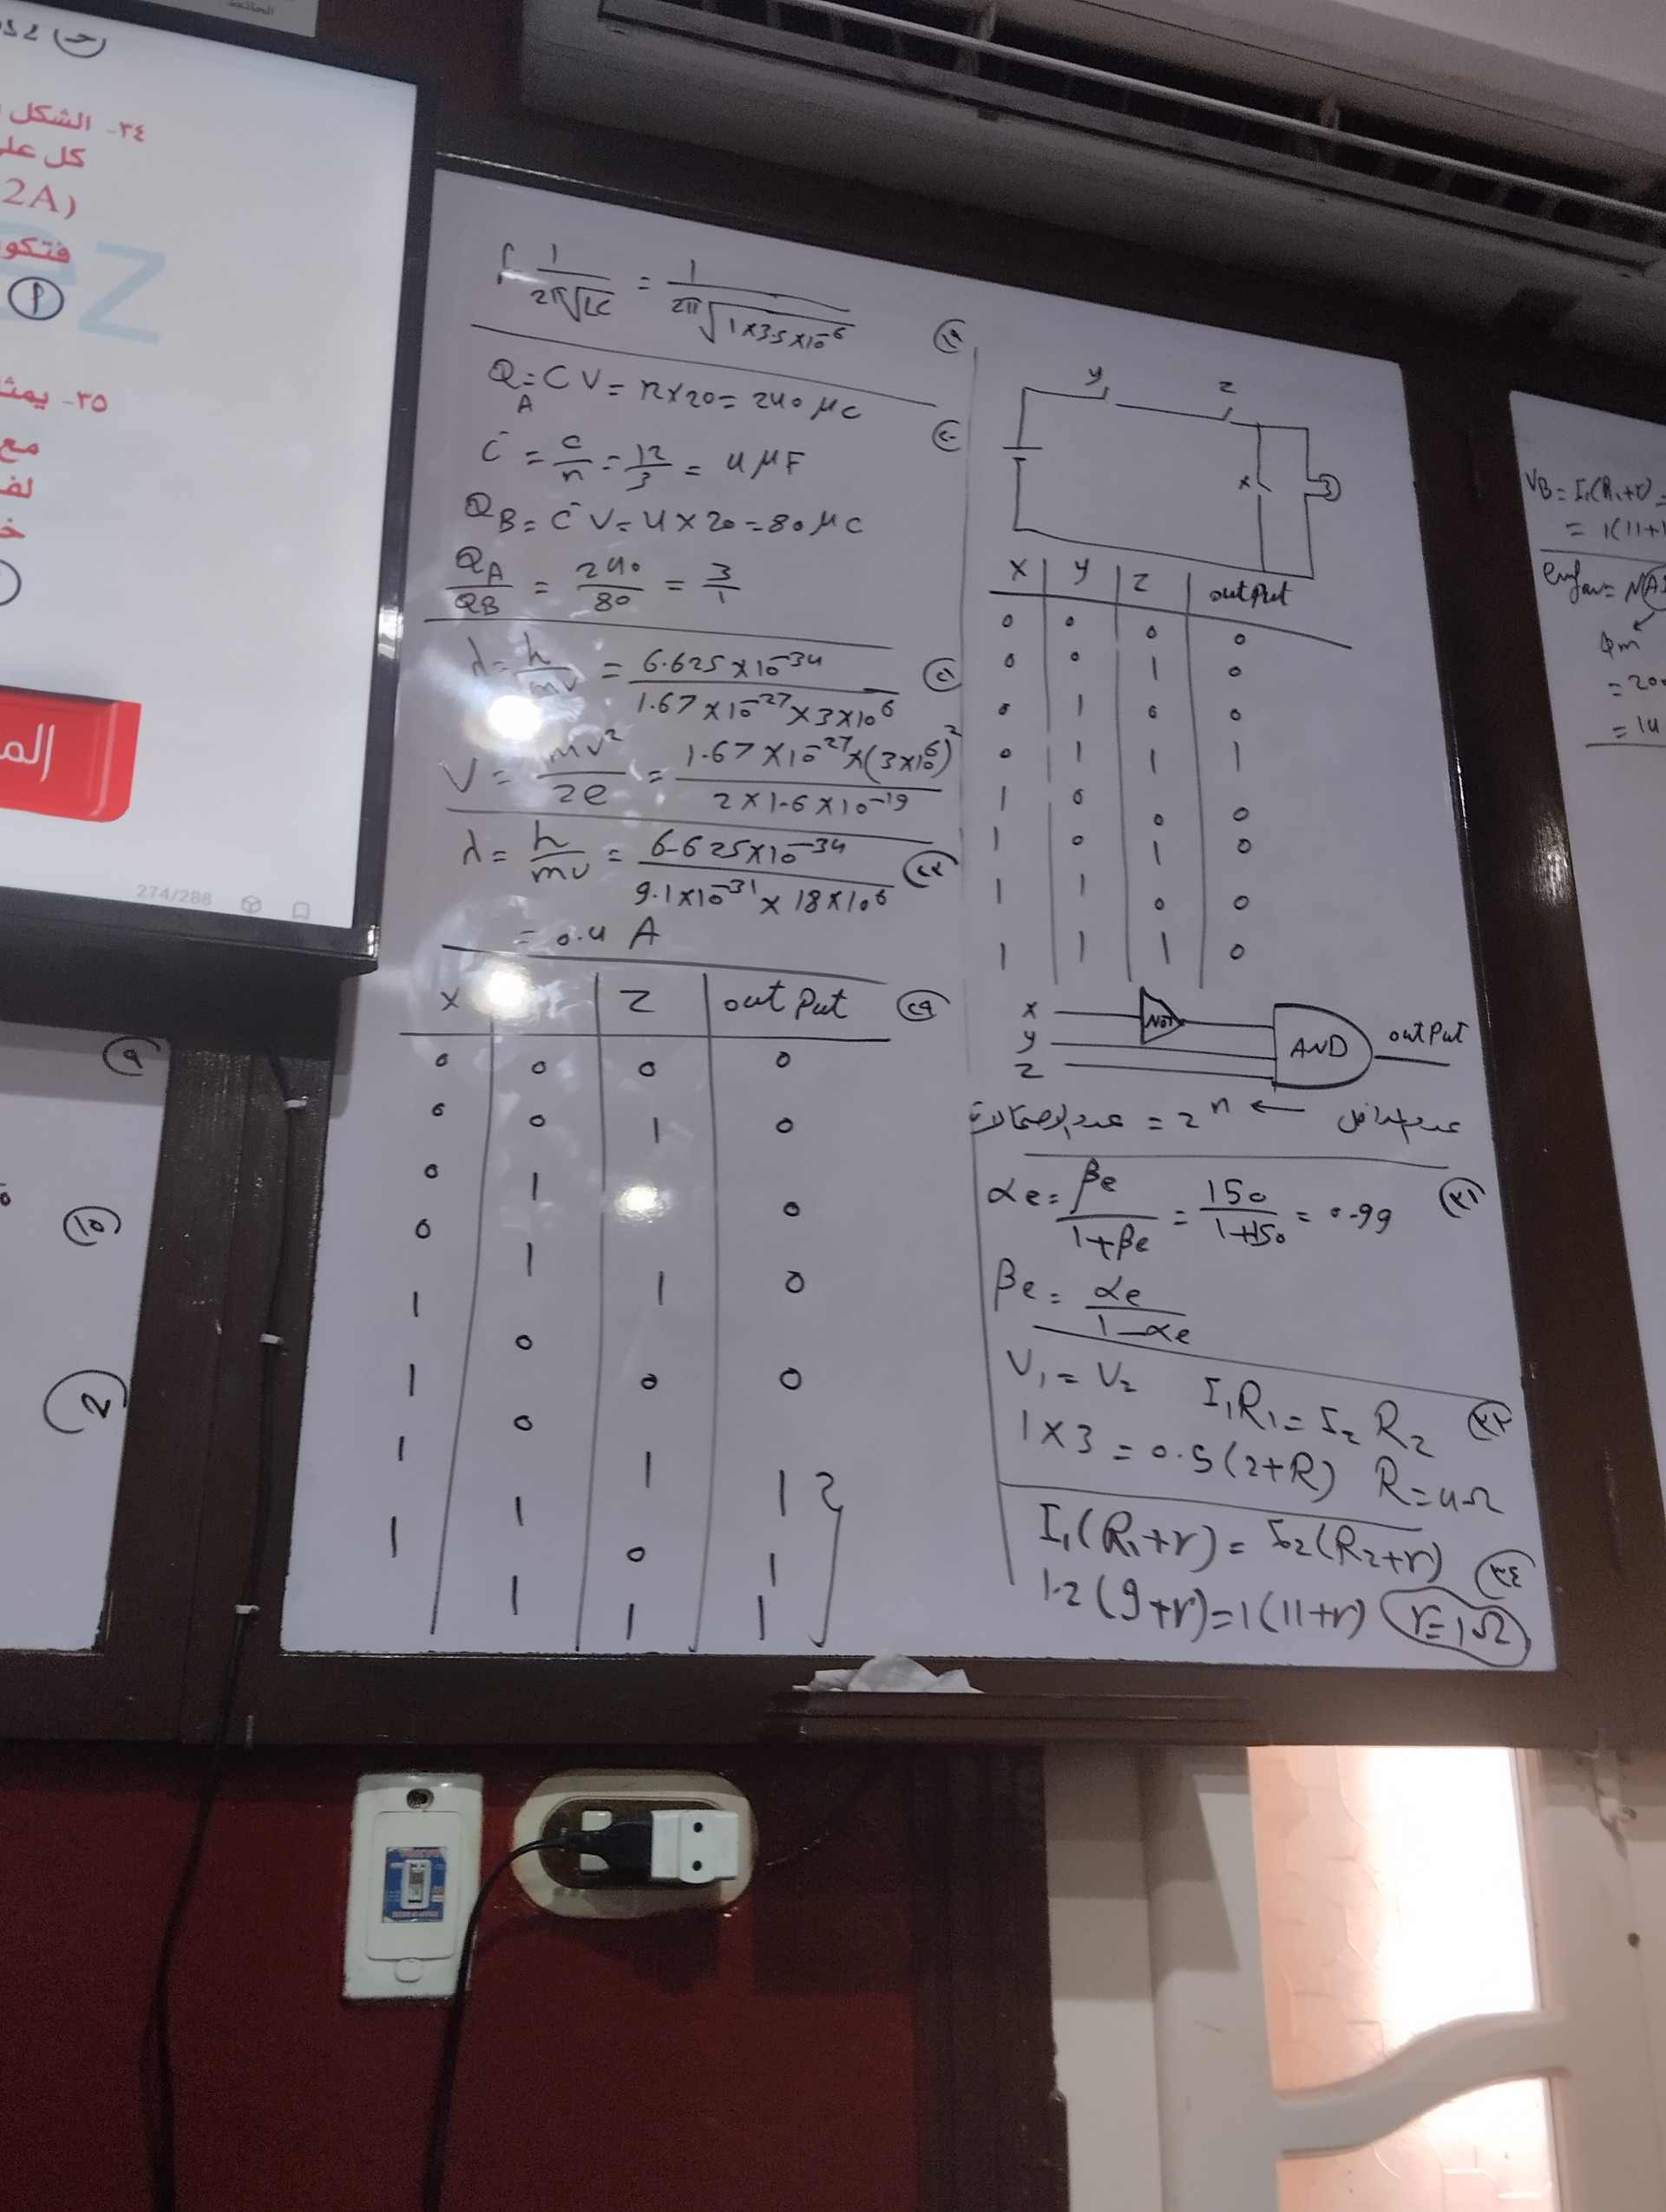 الحائط
٣٤- الشكل
كل على
2A)
فتكو
٣٥- يمثل
مع
لف
خ
ez
الم
274/288
f = 1/2π√LC = 1/2π√1×3.5×10⁻⁶
Q_A = CV = 12×20 = 240 μC
C̄ = C/n = 12/3 = 4 μF
Q_B = C̄V = 4×20 = 80 μC
Q_A/Q_B = 240/80 = 3/1
λ = h/mv = 6.625×10⁻³⁴/1.67×10⁻²⁷×3×10⁶
V = mv²/2e = 1.67×10⁻²⁷×(3×10⁶)²/2×1.6×10⁻¹⁹
λ = h/mv = 6.625×10⁻³⁴/9.1×10⁻³¹×18×10⁶
= 0.4 A
X Z output ٢٩
0 0 0 0
0 0 1 0
0 1 0
0 1 1 0
1 0 0 0
1 0 1 1
1 1 0 1
1 1 1
y z
x
X y Z output
0 0 0 0
0 0 1 0
0 1 0 0
0 1 1 1
1 0 0 0
1 0 1 0
1 1 0 0
1 1 1 0
x NOT
y AND output
z
عدد الاحتمالات = 2ⁿ ← عدد المداخل
αe = βe/1+βe = 150/1+150 = 0.99
βe = αe/1-αe
V₁ = V₂ I₁R₁ = I₂R₂
1×3 = 0.5(2+R) R = 4Ω
I₁(R₁+r) = I₂(R₂+r) ٣٤
1.2(9+r) = 1(11+r) r = 1Ω
VB = I₁(R₁+r) =
= 1(11+1
φm
= 200
= 14
٩
١٥
2